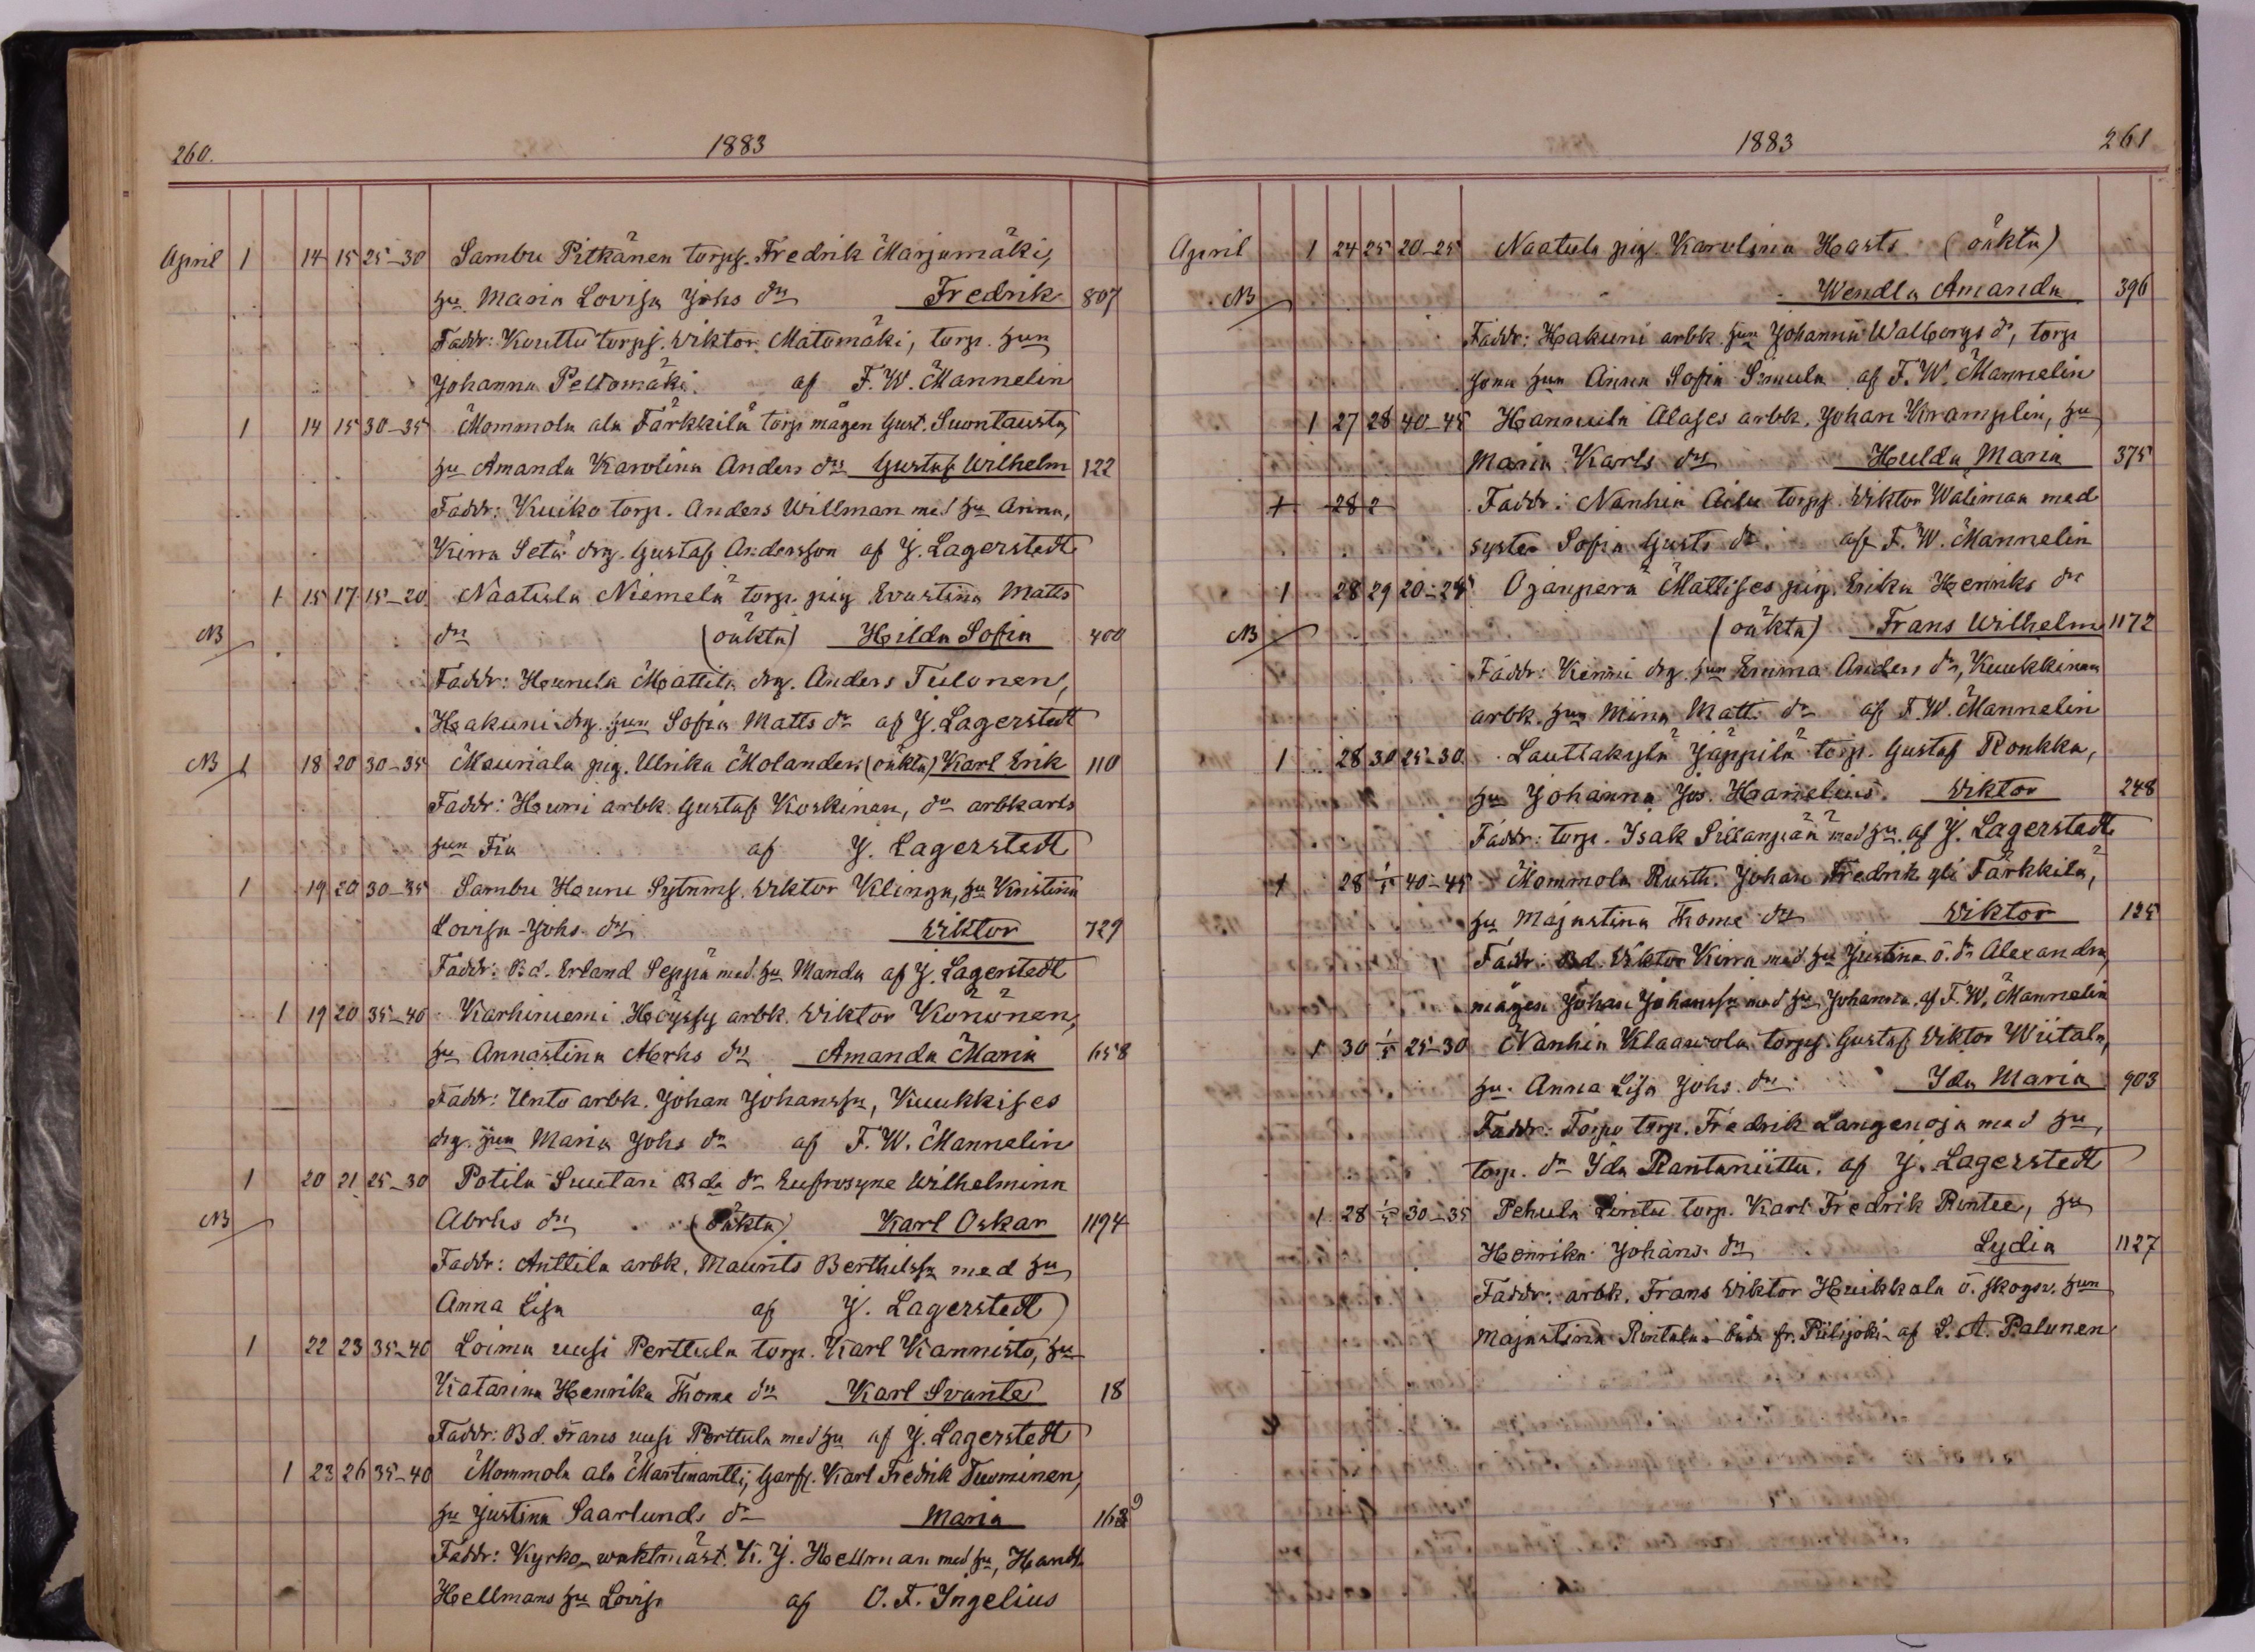 260.
1883
April 1 14 15 25-30 Sambu Pitkänen torps. Fredrik Marjamäki,
hu Maria Lovisa Johs dr Fredrik 807
Faddr: Kouttu torps. Viktor Matomäki, torp. hun
Johanna Peltomäki. af F. W. Mannelin
1 14 15 30-35 Mommola ala Färkkilä torp mågen Gust. Suontausta,
hu Amanda Karolina Anders dr Gustaf Wilhelm 122
Faddr: Kuiko torp. Anders Willman med hu Anna,
Kirra Setä drg. Gustaf Andersson af J. Lagerstedt
1 15 17 15-20 Naatula Niemelä torp. pig Evastina Matts
NB dr (oäkta) Hilda Sofia 400
Faddr: Hunula Mattila drg. Anders Tulonen,
Haakuni drg. hun Sofia Matts dr af J. Lagerstedt
NB 1 18 20 30-35 Mauriala pig. Ulrika Molander (oäkta) Karl Erik 110
Faddr: Huni arbk. Gustaf Koskinen, dr arbkarls
hun Fia af J. Lagerstedt
1 19 20 30-35 Sambu Hunu Sytnms. Viktor Klinga, hu Kristina
Lovisa Johs. dr Viktor 729
Faddr: Bd. Erland Seppä med hu Manda af J. Lagerstedt
1 19 20 35-40 Karhiniemi Höyssy arbk. Viktor Könönen,
hu Annastina Merhs dr Amanda Maria 658
Faddr: Unto arbk. Johan Johanssn, Kuukkises
drg. hun Maria Johs dr af F. W. Mannelin
1 20 21 25-30 Potila Suutari Bda dr Eufrosyne Wilhelmina
NB Abrhs dr (oäkta) Karl Oskar 1194
Faddr: Anttila arbk. Maurits Berthilssn med hu
Anna Lisa af J. Lagerstedt
1 22 23 35-40 Loima uusi Perttula torp. Karl Kannisto, hu
Katarina Henrika Thome dr Karl Svante 18
Faddr: Bd. Frans uusi Perttula med hu af J. Lagerstedt
1 23 26 35-40 Mommola ala Martinantti, Garfs. Karl Fredrik Tuominen,
hu Justina Saarlunds dr Maria
Faddr: Kyrko waktmäst. K. J. Hellman med hu, Handl.
Hellmans hu Lovisa af O. F. Ingelius
1883
261
April 1 24 25 20-25 Naatula pig. Karolina Hasts (oäkta)
NB Wendla Amanda 396
Faddr: Haakuni arbk. hun Johanna Walborgs dr, torp
hun Anna Sofia Simula af F. W. Mannelin
1 27 28 40-45 Hannula Alases arbk. Johan Kramplin, hu
Maria Karls dr Hulda Maria 375
1 28 2 Faddr: Nanhia Ailu torps. Viktor Waliman med
syster Sofia Gusts dr. af F. W. Mannelin
1 28 29 20-25 Ojanperä Mattises pig. Erika Henriks dr
NB (oäkta) Frans Wilhelm 1172
Faddr: Kenni drg. hun Emma Anders dr, Kuukkinen
arbk. hun Mina Matts dr af F. W. Mannelin
1 28 30 25-30 Lauttakylä Jäppilä torp. Gustaf Ronkka,
hu Johanna Jos. Hanelius. Viktor 248
Faddr: torp. Isak Sillanpää med hu. af J. Lagerstedt
1 28 1/5 40-45 Mommola Rusth. Johan Fredrik yli Färkkilä,
hu Majastina Thome dr Viktor 125
Faddr: Bd. Viktor Kirra med hu Justina o. dr Alexandra,
mågen Johan Johanssn med hu Johanna. af F. W. Mannelin
1 30 1/5 25-30 Nanhia Klaawola torps. Gustaf Viktor Wiitala,
hu. Anna Lisa Johs. dr. Ida Maria 903
Faddr: Torpo torp. Fredrik Langenoja med hu,
torp. dr Ida Rantaniittu. af J. Lagerstedt
1 28 1/5 30-35 Pehula Lintu torp. Karl Fredrik Rontee, hu
Henrika Johans. dr Lydia 1127
Faddr: arbk. Frans Viktor Huikkala o. skogsv. hun
Majastina Rintala båda fr. Piilijoki af L. A. Palunen